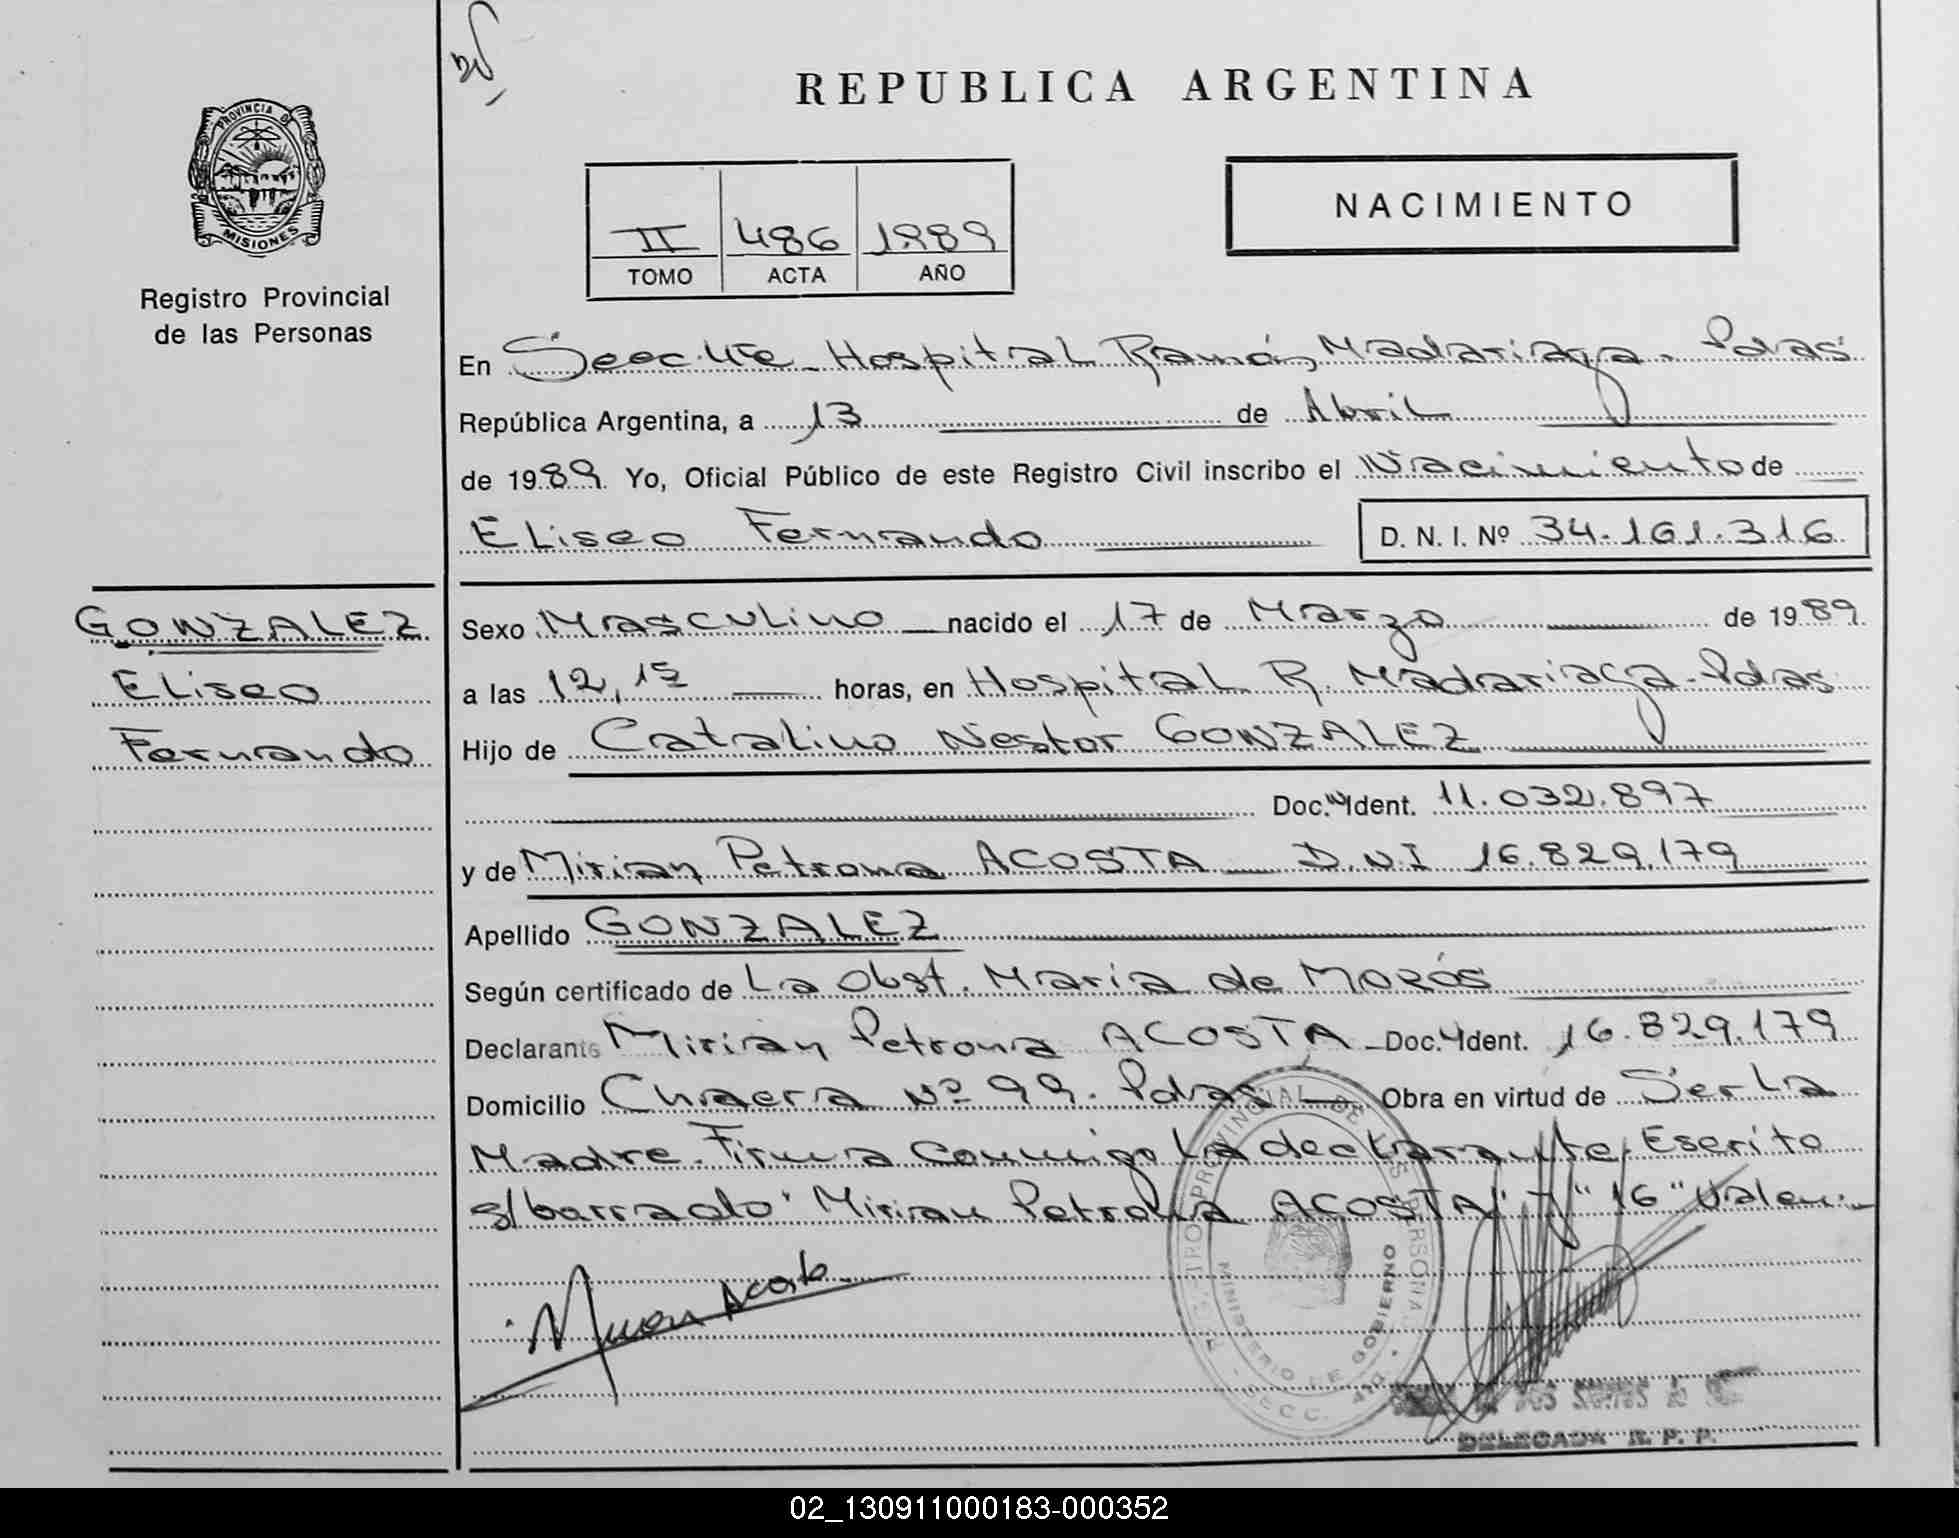 REPUBLICA ARGENTINA
PROVINCIA DE
MISIONES
Registro Provincial
de las Personas
II 486 1989
TOMO ACTA AÑO
NACIMIENTO
En Secc. 4ta. Hospital Ramón Madariaga. Pdas
República Argentina, a 13 de Abril
de 1989. Yo, Oficial Público de este Registro Civil inscribo el Nacimiento de
ELiseo Fernando D. N. I. Nº 34.161.316
GONZALEZ
ELiseo
Fernando
Sexo Masculino nacido el 17 de Marzo de 1989.
a las 12,15 horas, en Hospital R. Madariaga. Pdas
Hijo de Catalino Nestor GONZALEZ
Doc. Ident. 11.032.897
y de Mirian Petrona ACOSTA D.N.I 16.829.179
Apellido GONZALEZ
Según certificado de La Obst. Maria de Morós
Declarante Mirian Petrona ACOSTA Doc. Ident. 16.829.179
Domicilio Chacra Nº 99. Pdas Obra en virtud de Ser La
Madre. Firma Conmigo La declarante. Escrito
s/barrado "Mirian Petrona ACOSTA" y "16" Valen.
Mirian Acosta
REGISTRO PROVINCIAL DE LAS PERSONAS
MINISTERIO DE GOBIERNO
SECC. 4ta.
DOS SANTOS DE
DELEGADA R. P. P.
02_130911000183-000352